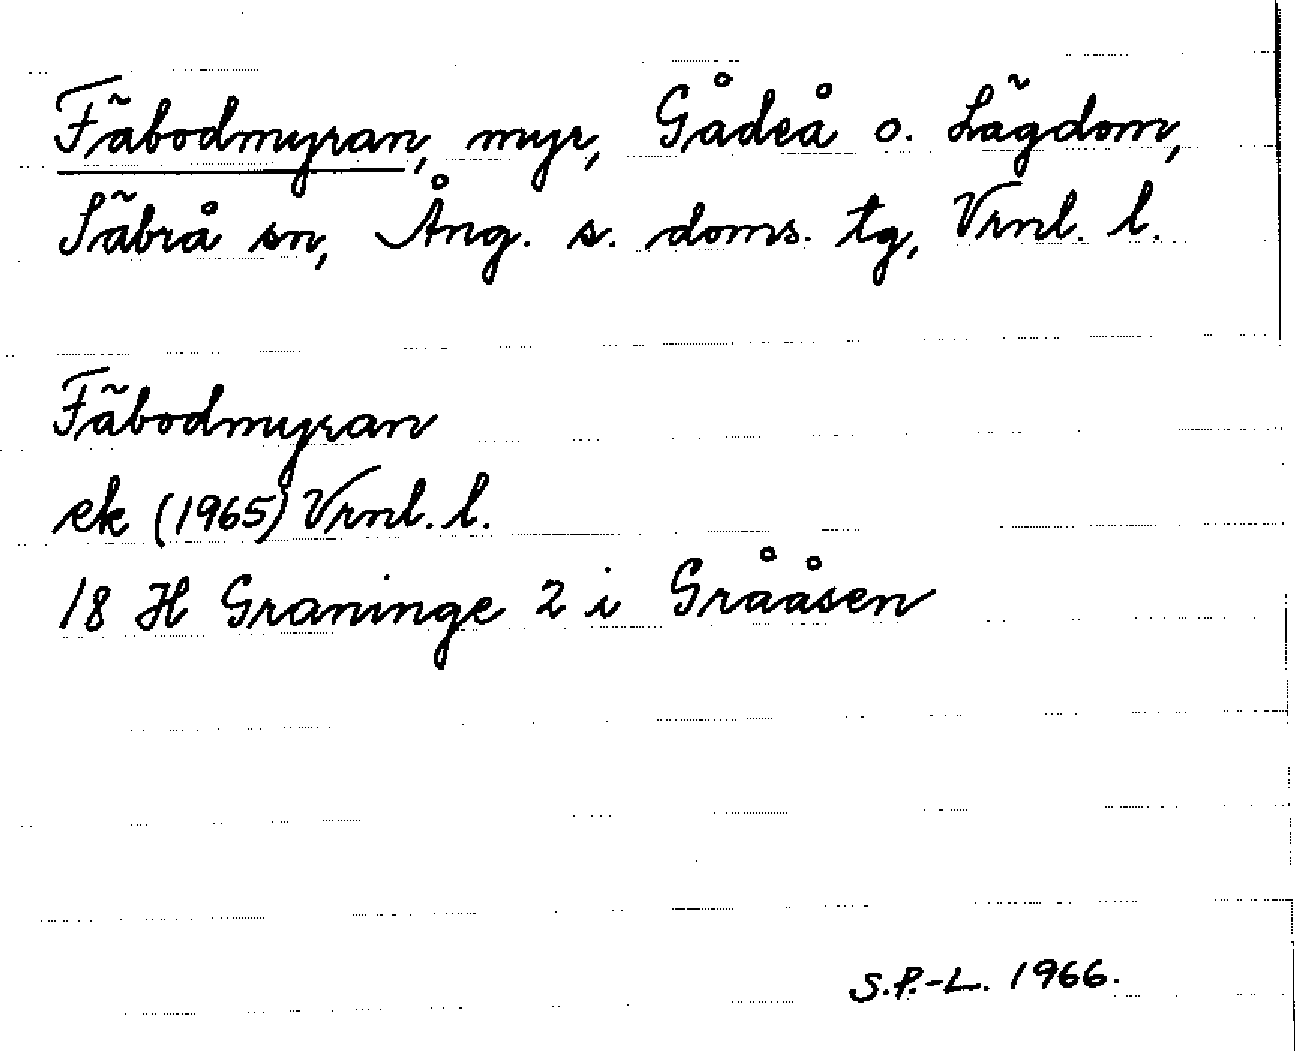 Fäbodmyran, myr, Gådeå o. Lägdom,
Säbrå sn, Ång. s. doms. tg, Vrnl. l.
Fäbodmyran
ek (1965) Vrnl. l.
18 H Graninge 2 i Grååsen
S.P.-L. 1966.